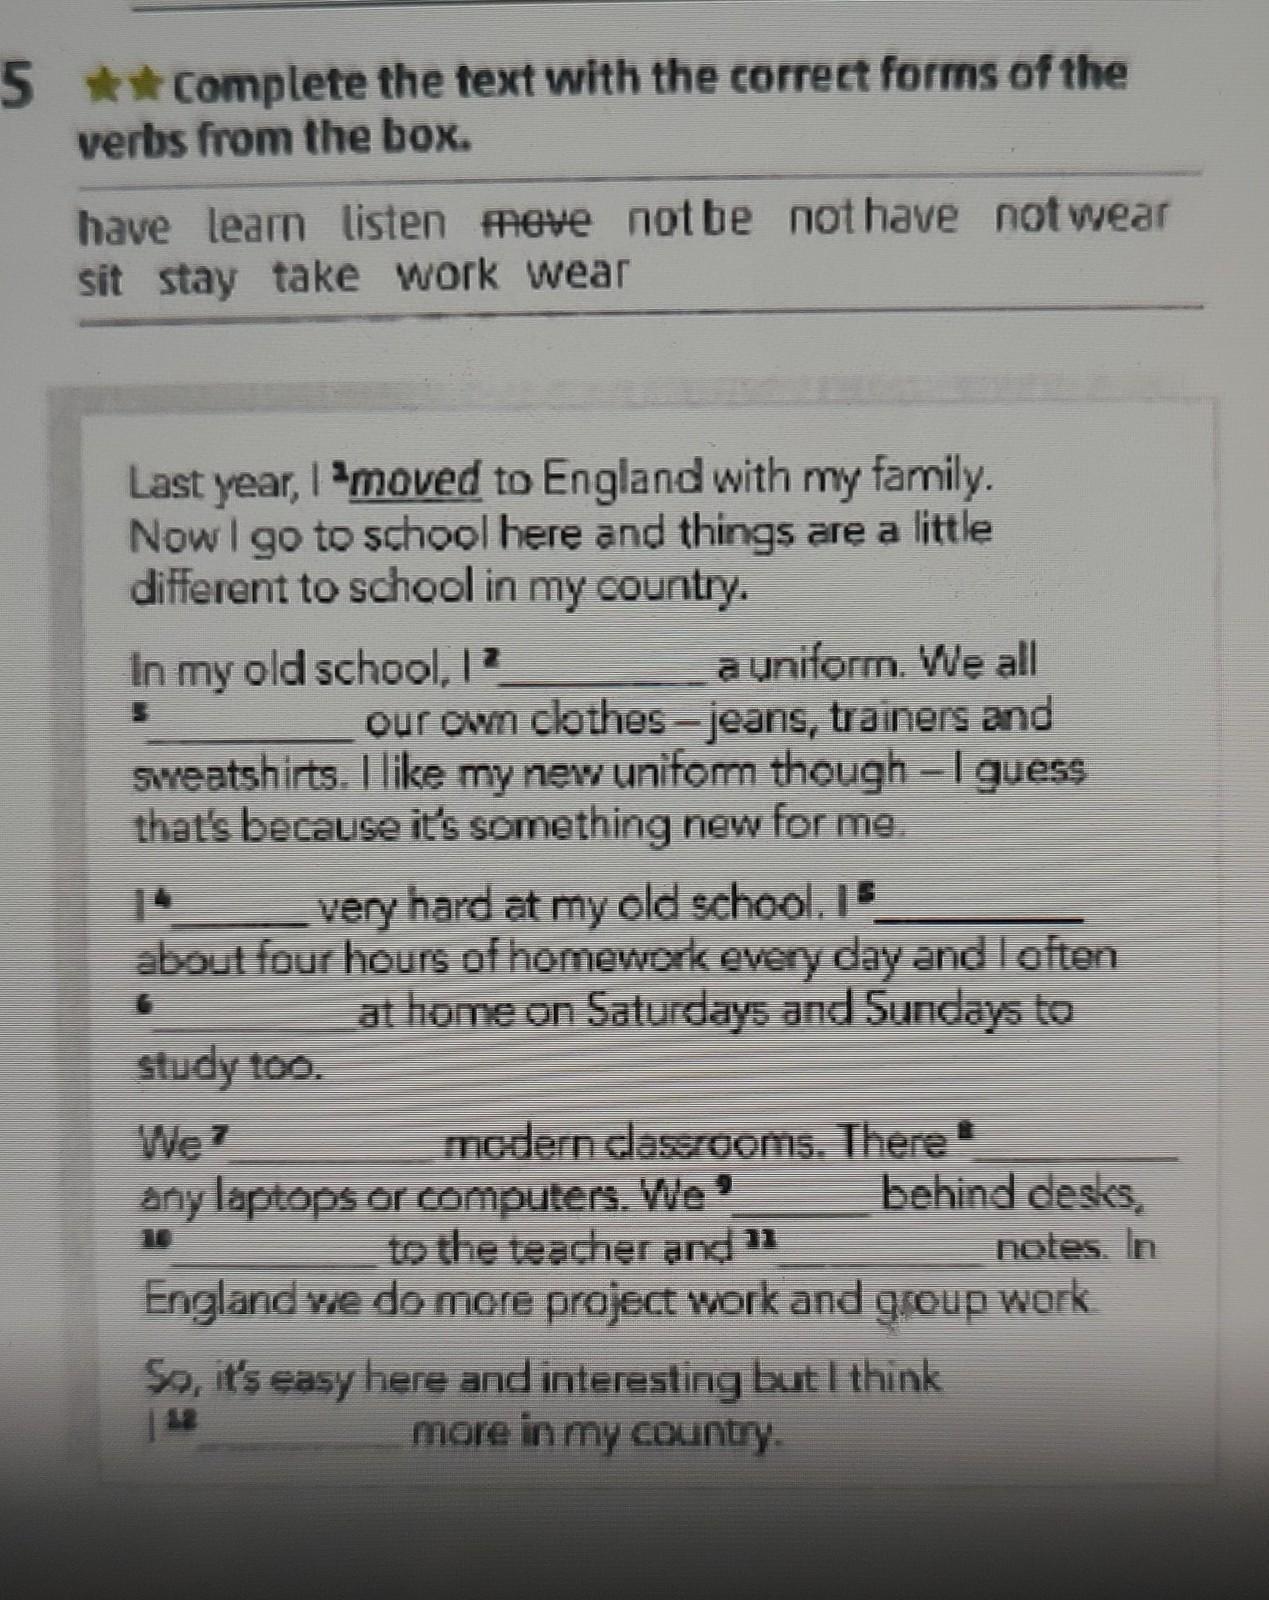 5 ★★ Complete the text with the correct forms of the
verbs from the box.
have learn listen move not be not have not wear
sit stay take work wear
Last year, I ¹moved to England with my family.
Now I go to school here and things are a little
different to school in my country.
In my old school, I ²________ a uniform. We all
³________ our own clothes – jeans, trainers and
sweatshirts. I like my new uniform though – I guess
that's because it's something new for me.
I ⁴______ very hard at my old school. I ⁵________
about four hours of homework every day and I often
⁶________ at home on Saturdays and Sundays to
study too.
We ⁷________ modern classrooms. There ⁸________
any laptops or computers. We ⁹______ behind desks,
¹⁰________ to the teacher and ¹¹________ notes. In
England we do more project work and group work.
So, it's easy here and interesting but I think
I ¹²________ more in my country.